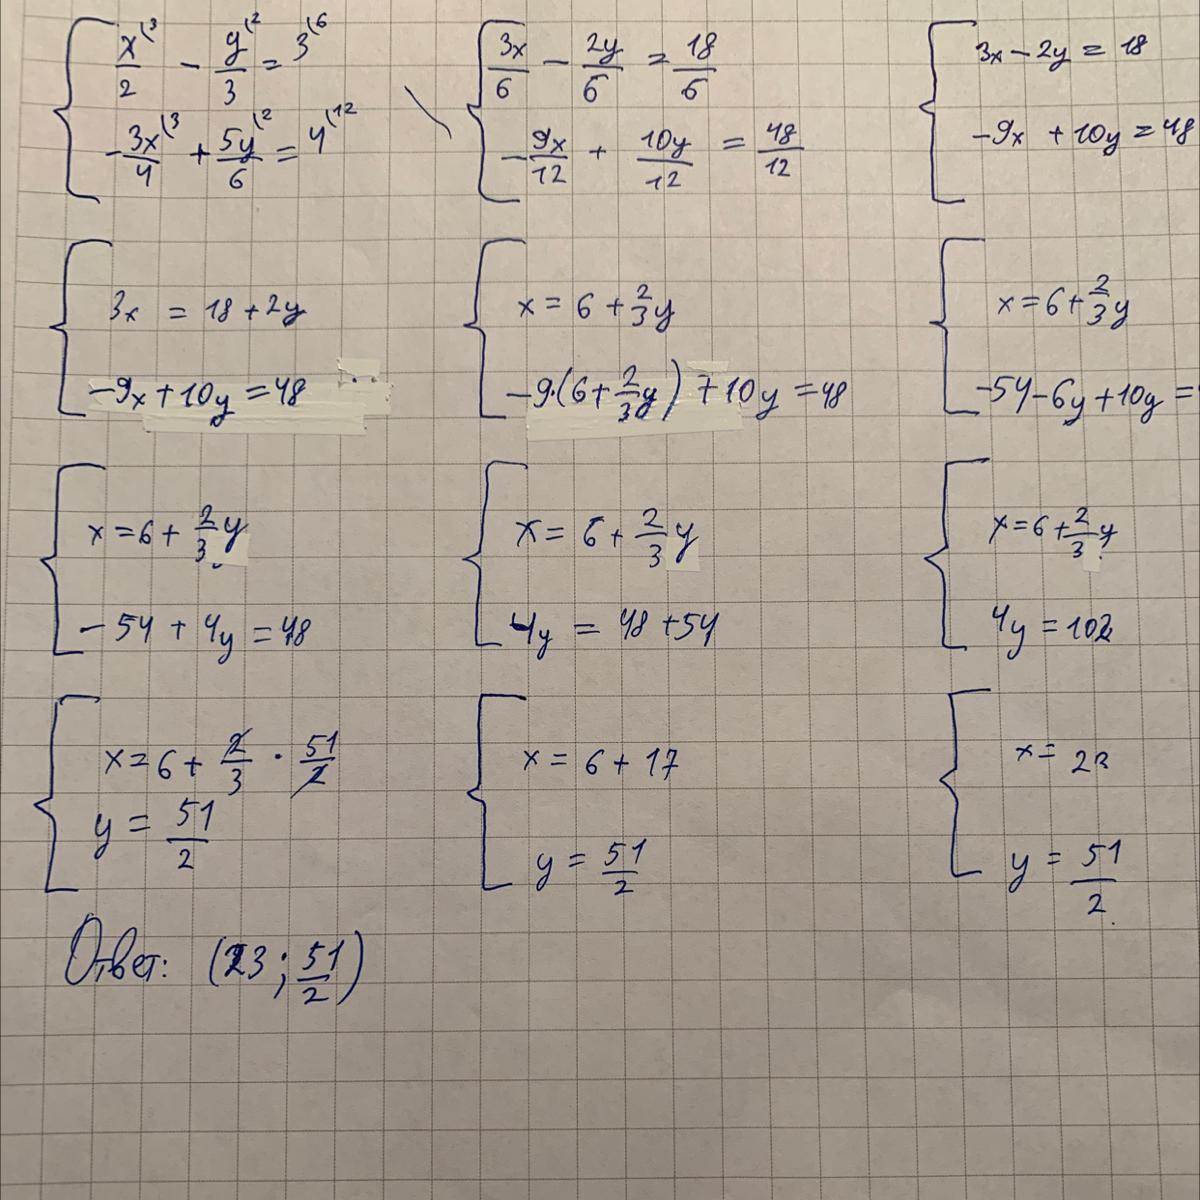 x⁽³/2 − y⁽²/3 = 3⁽⁶
−3x⁽³/4 + 5y⁽²/6 = 4⁽¹²
3x/6 − 2y/6 = 18/6
−9x/12 + 10y/12 = 48/12
3x − 2y = 18
−9x + 10y = 48
3x = 18 + 2y
−9x + 10y = 48
x = 6 + 2/3 y
−9·(6 + 2/3 y) + 10y = 48
x = 6 + 2/3 y
−54 − 6y + 10y =
x = 6 + 2/3 y
−54 + 4y = 48
x = 6 + 2/3 y
4y = 48 + 54
x = 6 + 2/3 y
4y = 102
x = 6 + 2/3 · 51/2
y = 51/2
x = 6 + 17
y = 51/2
x = 23
y = 51/2
Ответ: (23; 51/2)